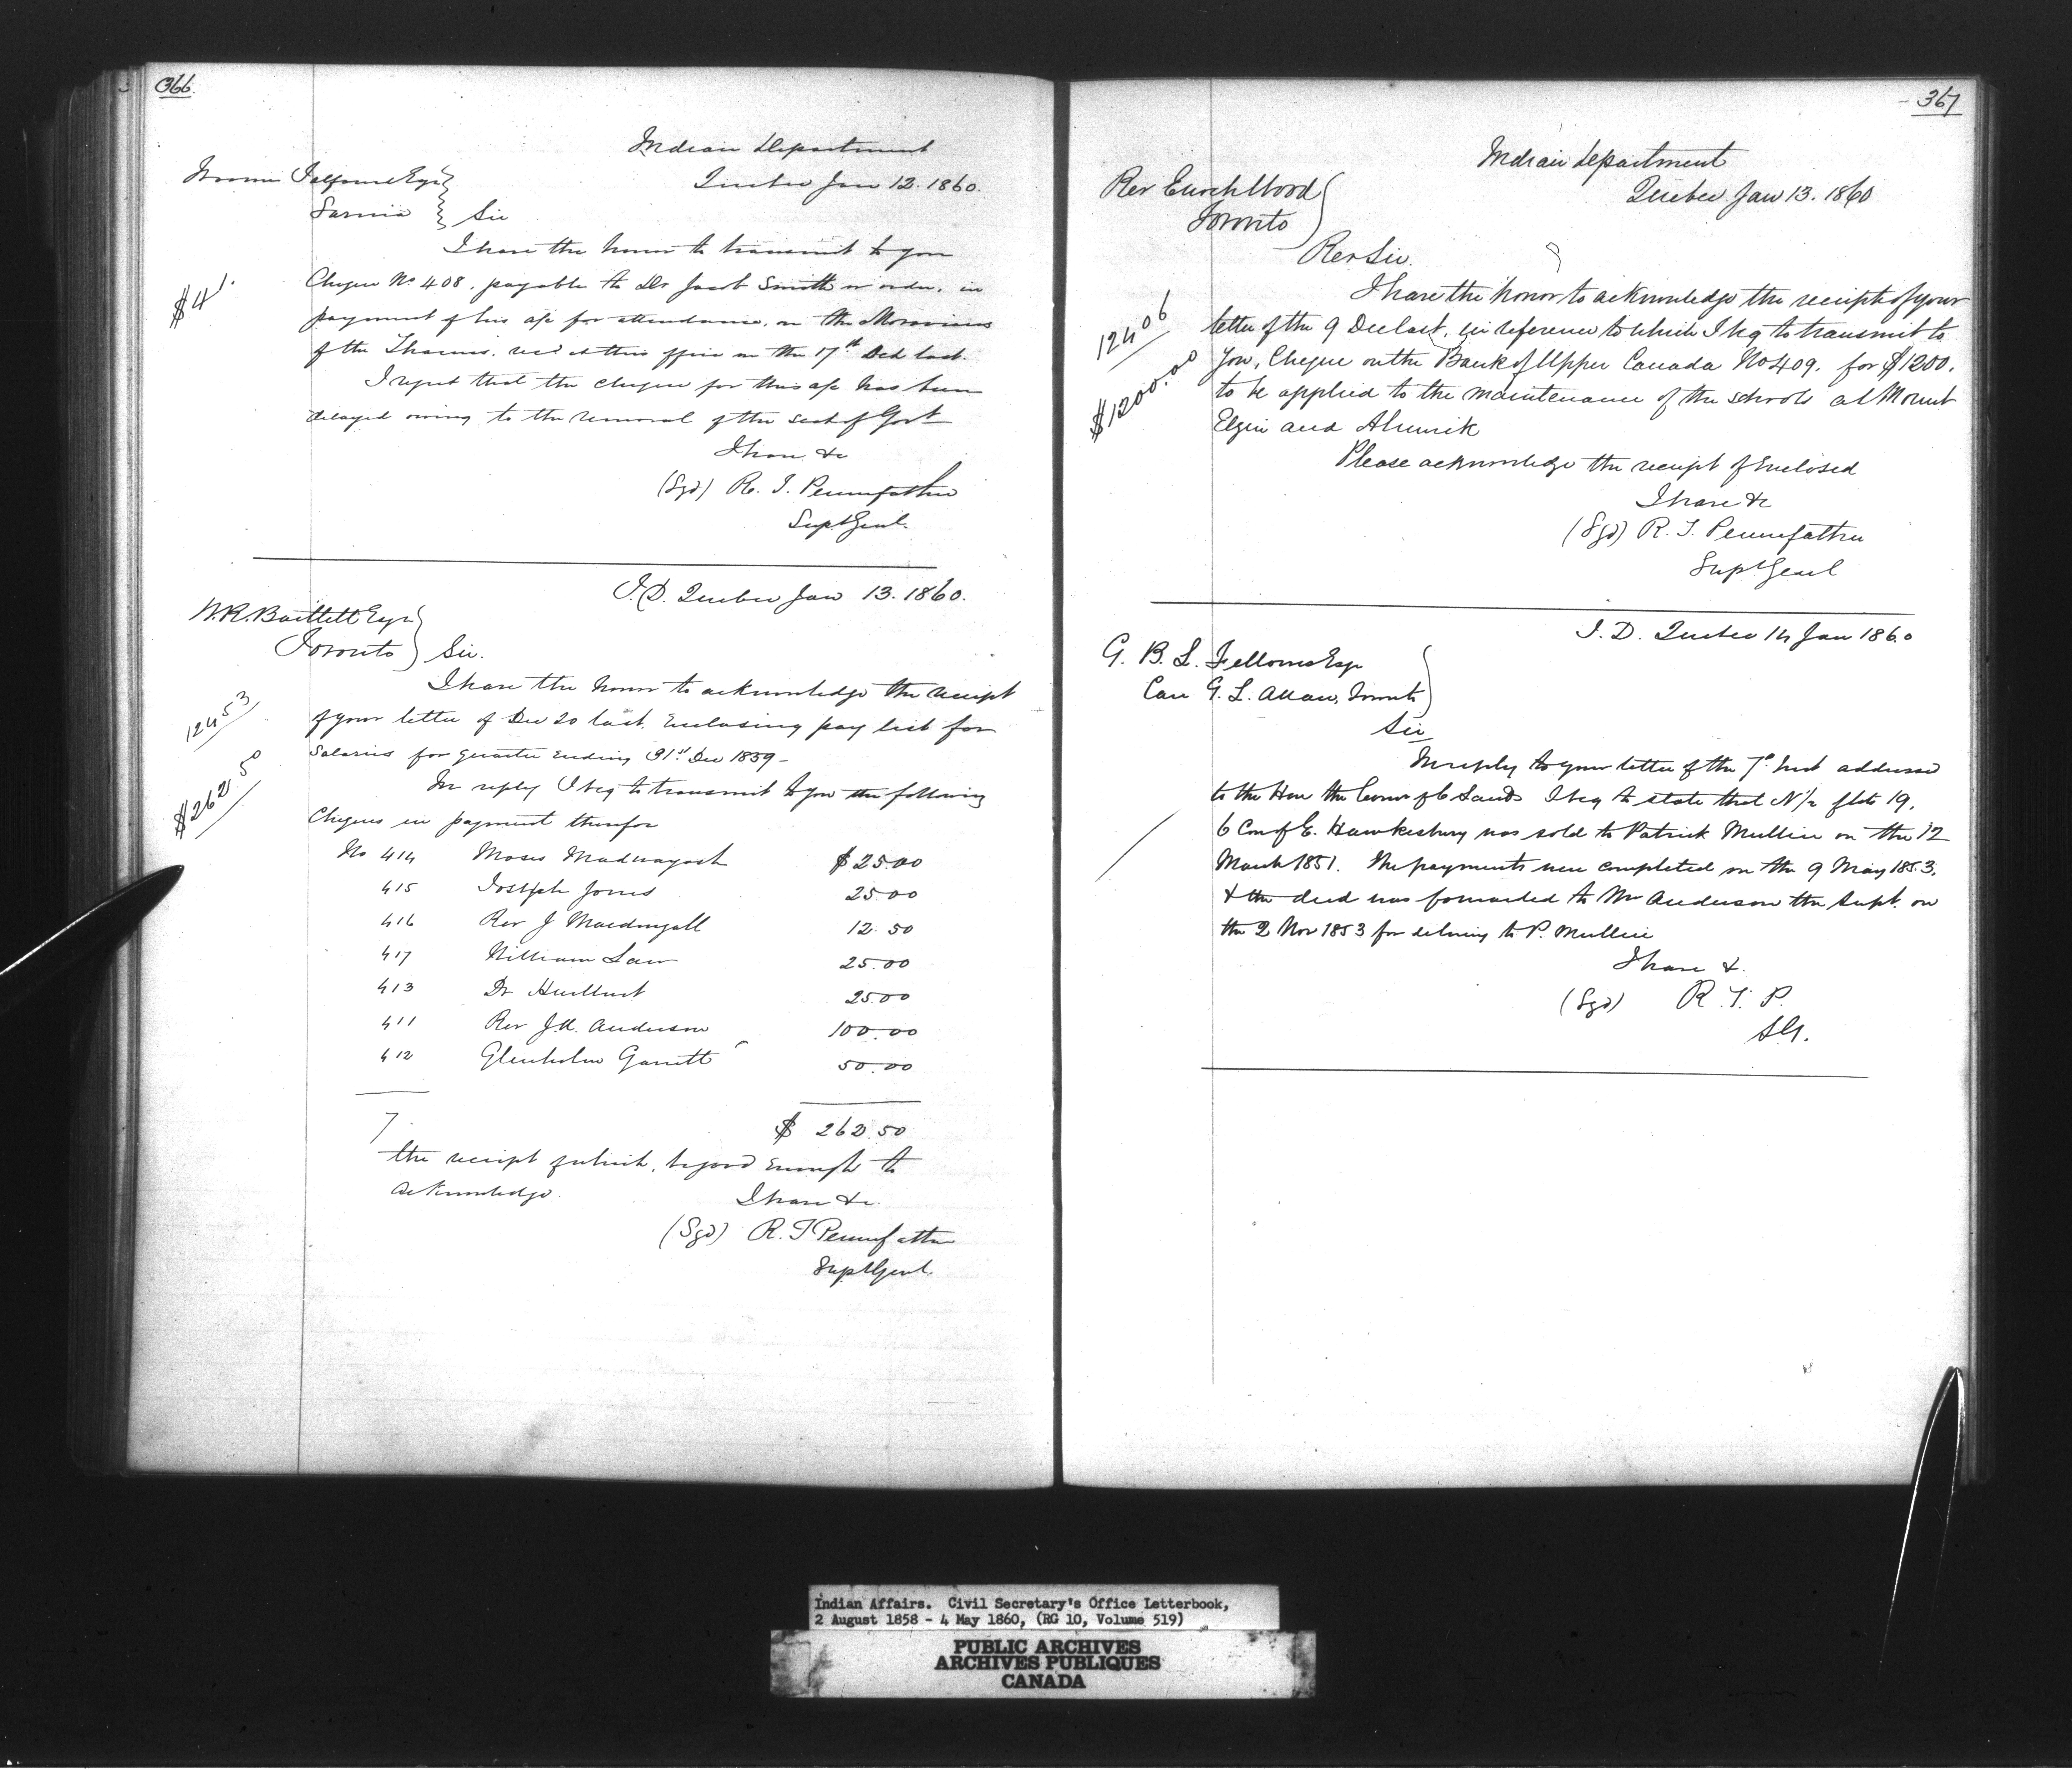 366.
Indian Department
Quebec Jan 13. 1860.
Froome Talfourd Esqr
Sarnia
Sir
I have the honor to transmit to you
$41.
Cheque No 408. payable to Dr Jacob Smith or order. in
payment of his a/c for attendance. on the Moravians
of the Thames. recd at this office on the 17th Dec last.
I regret that the cheque for this a/c has been
delayed owing to the removal of the seat of Govt
I have &c
(Sgd) R. T. Pennefather
Supt Genl.
I.D. Quebec Jan 13. 1860.
W. R. Bartlett Esqr
Toronto
Sir.
I have the honor to acknowledge the receipt
12453
of your letter of Dec 20 last. Enclosing pay list for
Salaries for quarter Ending 31st Dec 1859 -
$262.50
In reply I beg to transmit to you the following
Cheques in payment therefor
No 414 Moses Madwayosh $25.00
415 Joseph Jones 25.00
416 Rev J Macdougall 12.50
417 William Law 25.00
413 Dr Hurlburt 25.00
411 Rev J.A. Anderson 100.00
412 Glenholm Garrett 50.00
7. $ 262.50
the receipt of which. be good Enough to
acknowledge.
I have &c.
(Sgd) R. T Pennefather
Supt Genl.
367
Indian Department
Quebec Jan 13. 1860
Rev Enoch Wood
Toronto
Rev Sir.
I have the honor to acknowledge the receipt of your
12406
letter of the 9 Dec last, in reference to which I beg to transmit to
you, Cheque on the Bank of Upper Canada No 409. for $1200.
$1200.00
to be applied to the maintenance of the schools at Mount
Elgin and Alnwick
Please acknowledge the receipt of Enclosed
I have &c
(Sgd) R. T. Pennefather
Supt Genl
I. D. Quebec 14 Jan 1860
G. B. L. Fellowes Esqr
Care G. L. Allan, Toronto
Sir
In reply to your letter of the 7th Inst addressed
to the Hon the Comr of C Lands I beg to state that N/2 of lot 19.
6 Con of E. Hawkesbury was sold to Patrick Mullin on the 12
March 1851. The payments were completed on the 9 May 1853.
& the deed was forwarded to Mr Anderson the Supt. on
the 2 Nov 1853 for delivery to P. Mullin
I have &.
(Sgd) R. T. P.
S.G.
Indian Affairs. Civil Secretary's Office Letterbook,
2 August 1858 - 4 May 1860, (RG 10, Volume 519)
PUBLIC ARCHIVES
ARCHIVES PUBLIQUES
CANADA